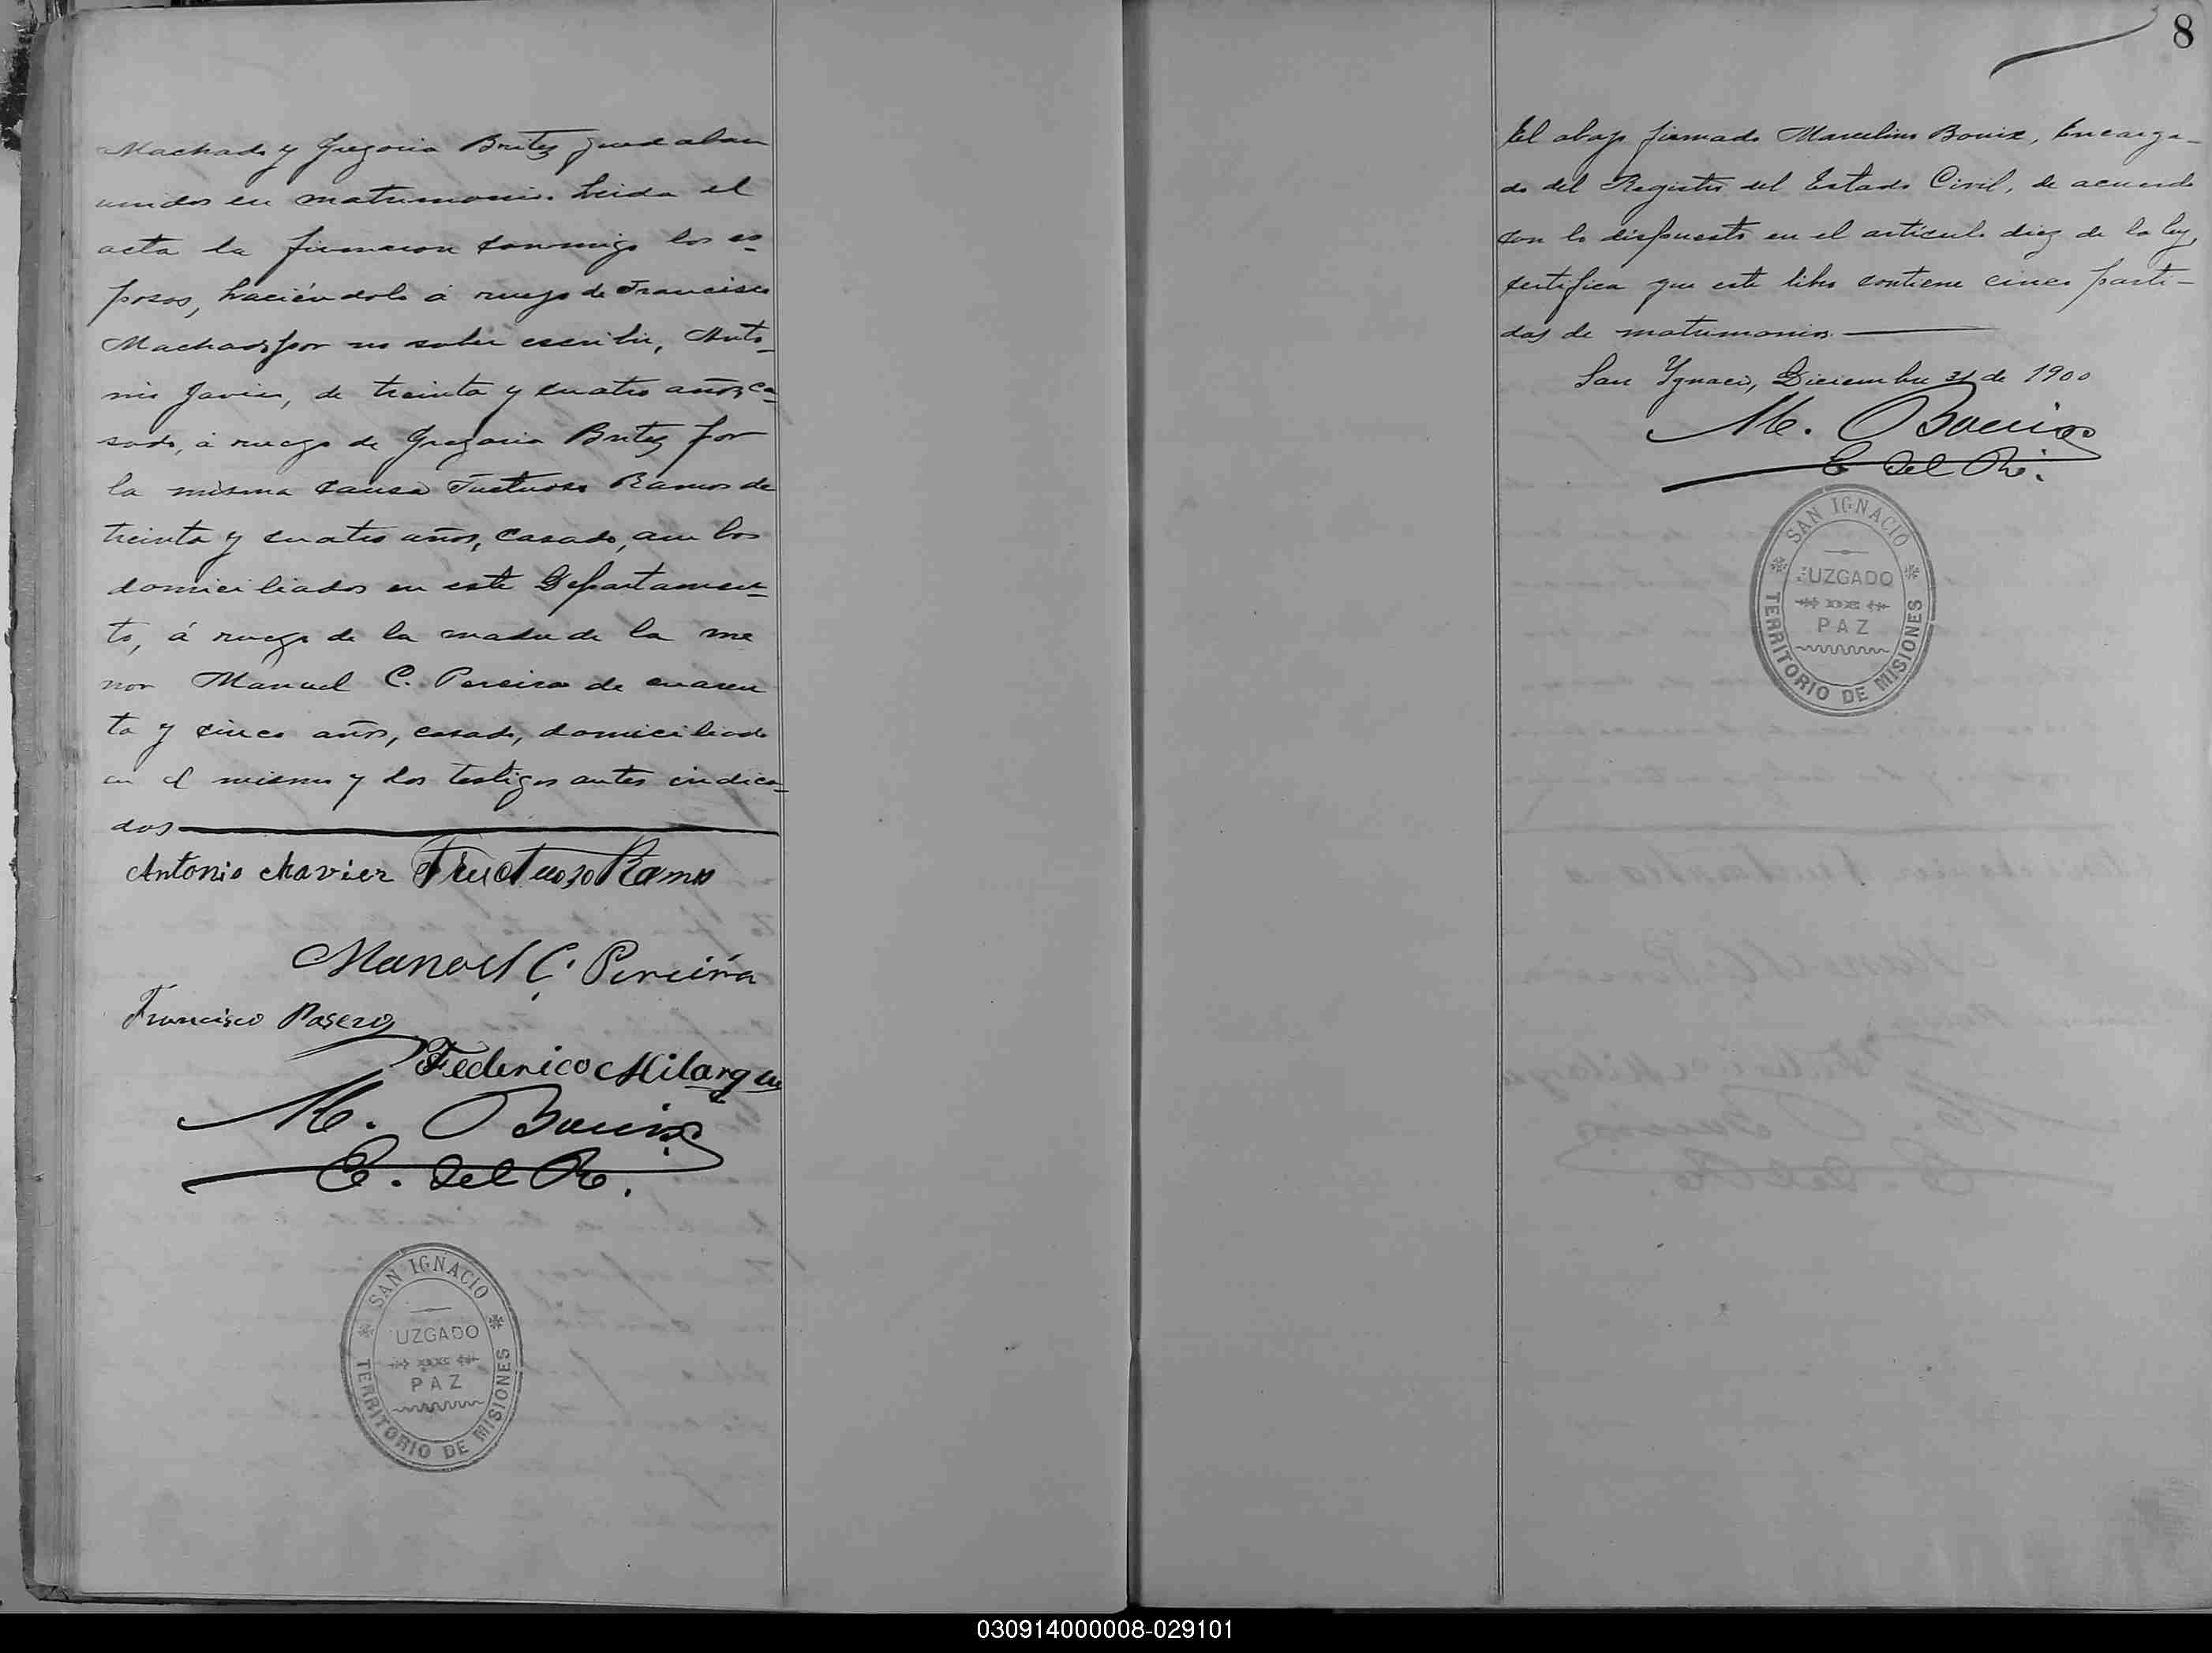 Machado y Gregoria Britez quedaban
unidos en matrimonio. Leida el
acta la firmaron conmigo los es-
posos, haciéndolo á ruego de Francisco
Machado por no saber escribir, Anto-
nio Javier, de treinta y cuatro años, ca-
sado, á ruego de Gregoria Britez por
la misma causa Fructuoso Ramos de
treinta y cuatro años, casado, ambos
domiciliados en este Departamen-
to, á ruego de la madre de la me
nor Manuel C. Pereira de cuaren
ta y cinco años, casado, domiciliado
en el mismo y los testigos antes indica-
dos
Antonio Chavier Fructuozo Ramos
Manoel C. Pereira
Francisco
Federico
M. Bouix
E. del R.
SAN IGNACIO
UZGADO
DE
PAZ
TERRITORIO DE MISIONES
8
El abajo firmado Marcelino Bouix, Encarga-
do del Registro del Estado Civil, de acuerdo
con lo dispuesto en el artículo diez de la ley,
certifica que este libro contiene cinco parti-
das de matrimonios.
San Ygnacio, Diciembre 31 de 1900
M. Bouix
E. del R.
SAN IGNACIO
UZGADO
DE
PAZ
TERRITORIO DE MISIONES
030914000008-029101